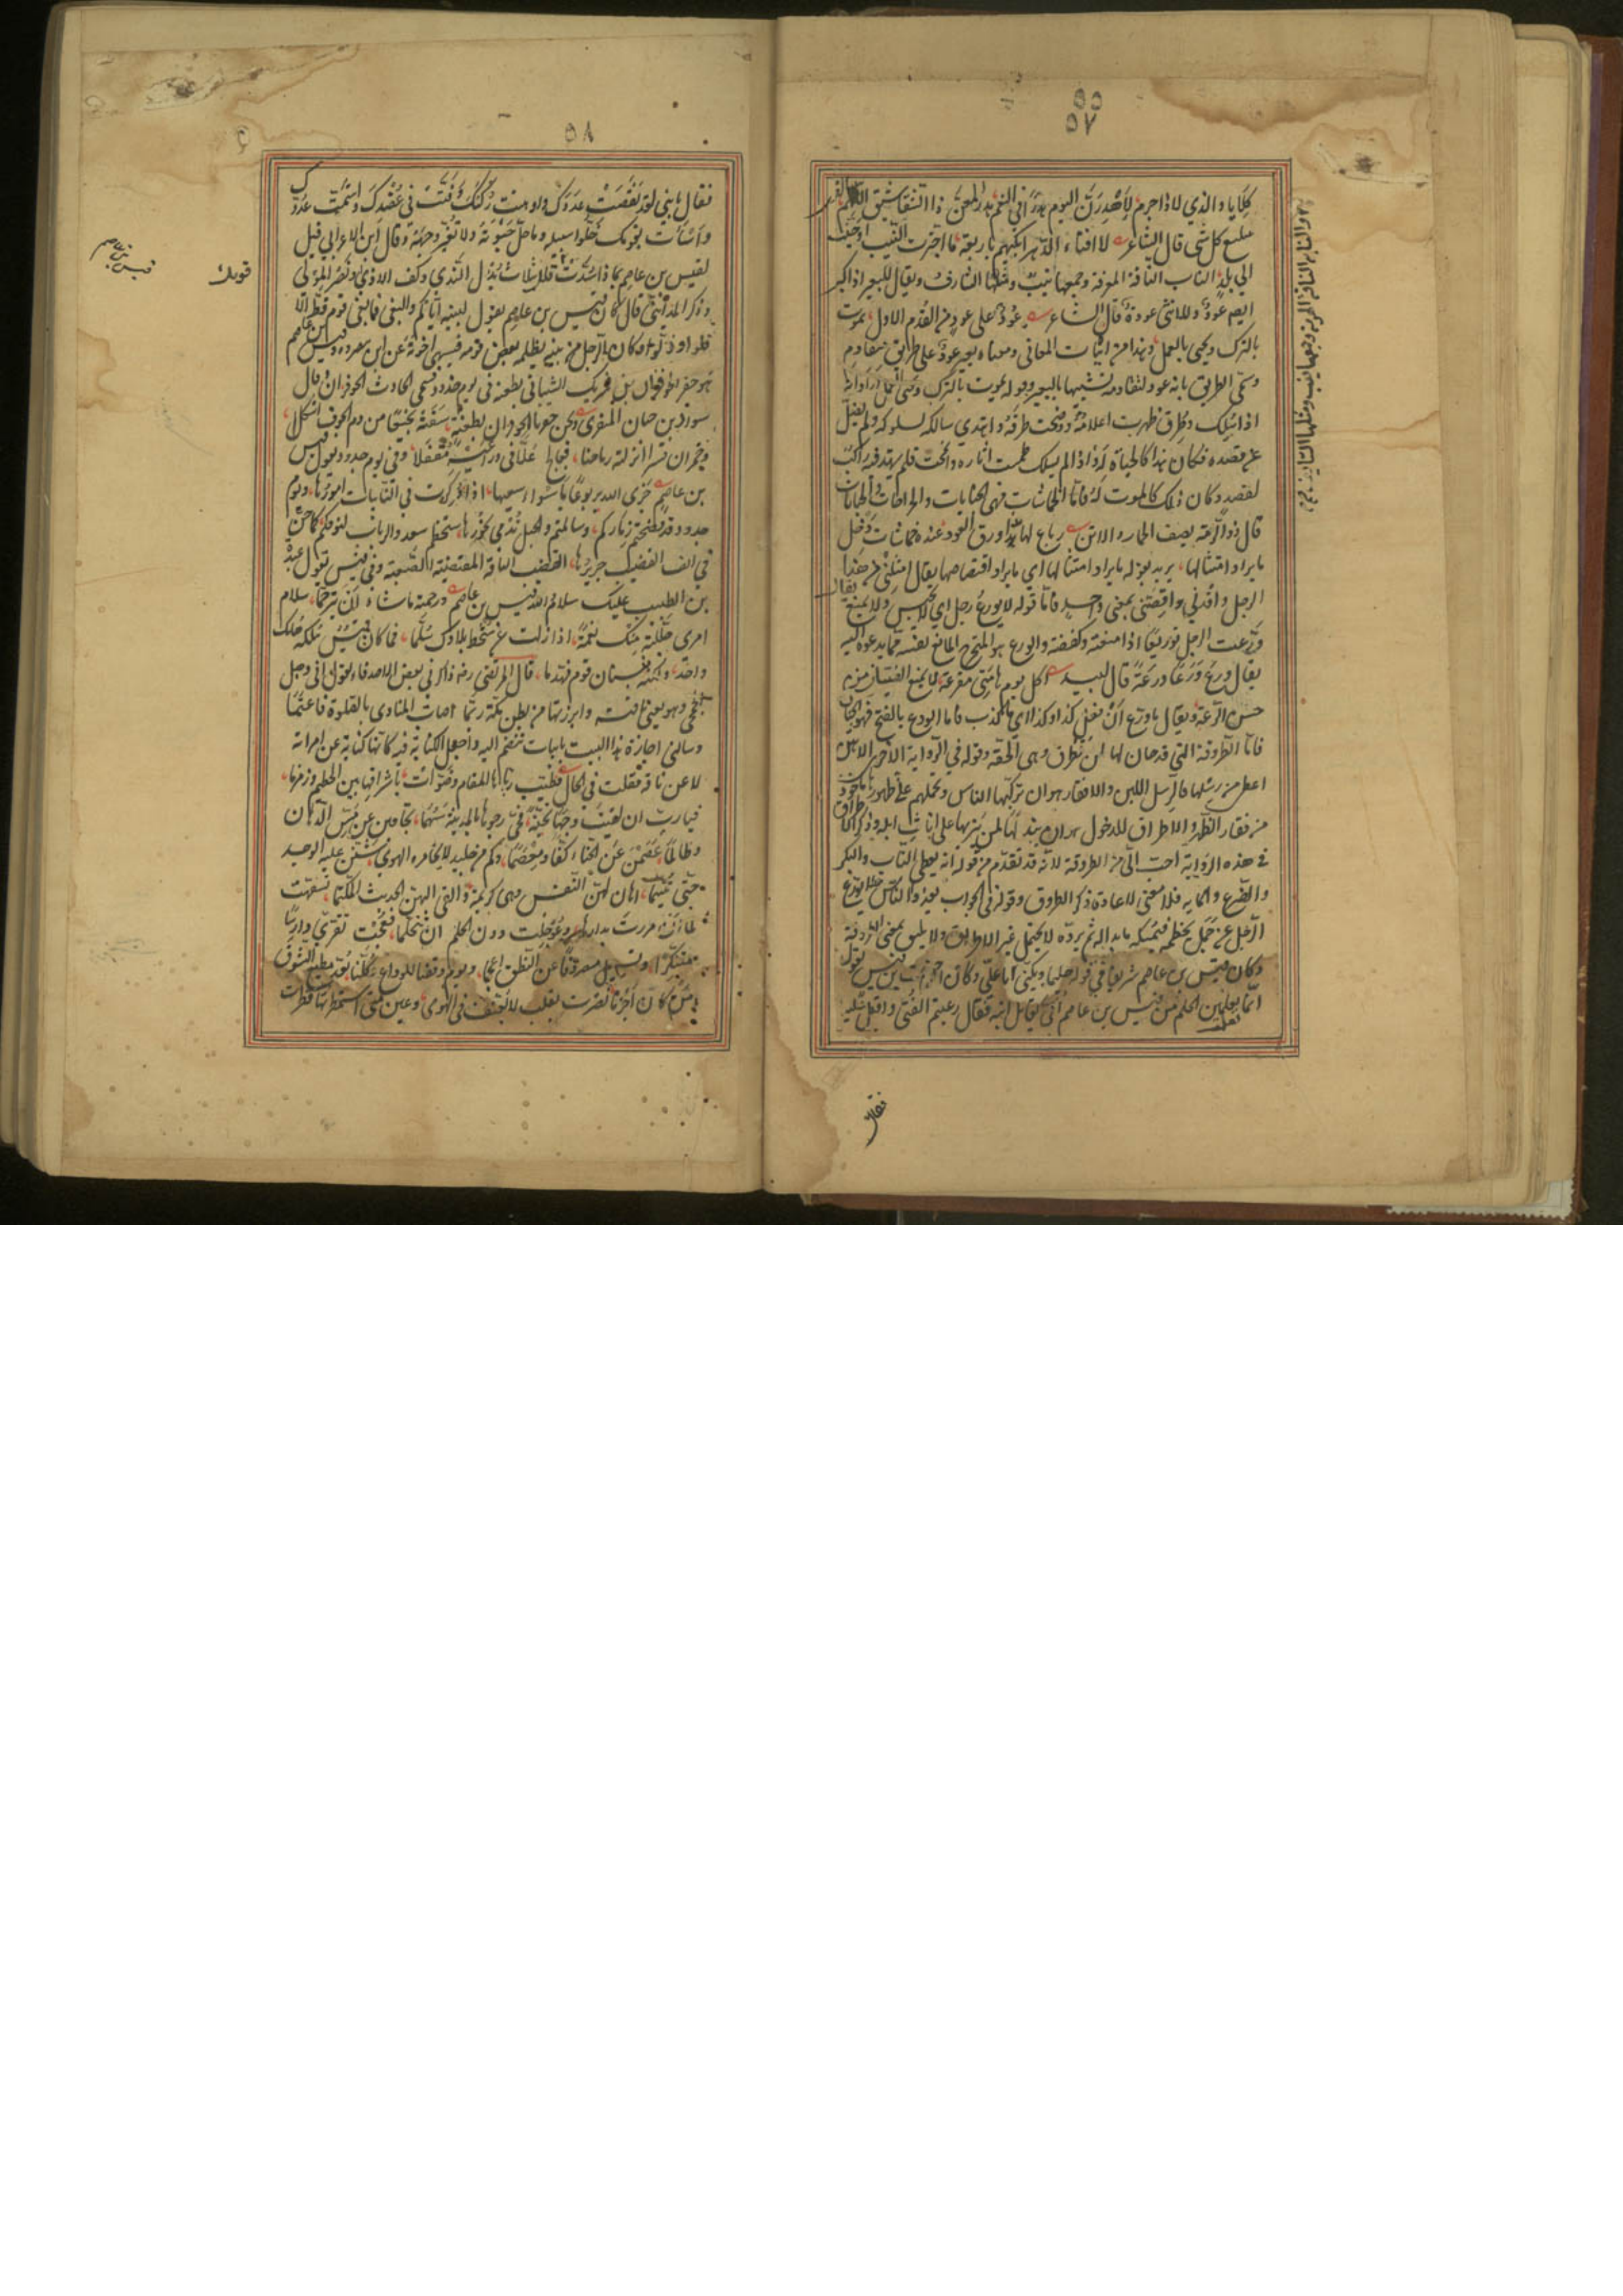 ٥٥
٥٧
كلايا والذي لاذ اجرم لأهدرن اليوم هدرا في النعم هدر المعنى ذا الشقاشيق اللهم
مبلع كل شي قال الشاعر لا افتاء الدهر ابكيهم باربعة ما اجترت النيب او حنت
الى بلد الناب الناقة المرفة وجمعها نيب ومثلها الشارف ويقال للبعير اذا كبر
ايضا عود وللانثى عودة قال الشاعر عود على عود من القدم الاول يموت
بالترك ويحيى بالعمل وهذا من ابيات المعاني ومعناه بعير عود على طريق متقادم
وسمى الطريق بانه عود لتقادمه تشبيها بالبعير وقوله يموت بالترك ويحيى بالعمل اراد انه
اذا سلك وطرق ظهرت اعلامه ووضحت طرقه واهتدى سالكه لسلوكه ولم يضل
عن قصده فكان هذا كالحياة له واذا لم يسلك طمست اثاره وامحت فلم يهتد فيه راكب
لقصد وكان ذلك كالموت له فاما الخماشات فهي الجنايات والجراحات
قال ذو الرمة يصف الحمار والاتن رباع لها مذ اورق العود عنده خماشات ذحل
ما يراد امتثالها يريد بقوله ما يراد امتثالها اي ما يراد اقتصاصها يقال امثلني من هذا
الرجل واقدني واقصني بمعنى واحد فاما قوله لا يورع رجل اي لا يحبس ولا يمنع يقال
ورعت الرجل توريعا اذا منعته وكففته والورع هو المتحرج المانع نفسه مما يدعوه اليه
يقال ورع ورعا ورعة قال لبيد اكل يوم هامتي مقزعة لا يمنع الفتيان من
حسن الرعة ويقال ما ورع ان فعل كذا وكذا اي ما كذب فاما الورع بالفتح فهو الجبان
فاما الطروقة التي قد حان لها ان تطرق وهي الحقة وقوله في الرواية الاخرى الا من
اعطى من رسلها فالرسل اللبن والافقار هو ان تركبها الناس وتحملهم على ظهورها ماخوذ
من فقار الظهر والاطراق للفحول هو ان يبذلها لمن ينزيها على اناث ابله وذكر الاطراق
في هذه الرواية احب الي من الطروقة لانه قد تقدم من قوله انه يعطي الناب والبكر
والضرع والمايه فلا معنى لاعادة ذكر الطروق وقوله في الجواب يغدو الناس فلا يوزع
الرجل عن جمل يخطمه فيمسكه ما بدا له ثم يرده لا يحتمل غير الاطراق ولا يليق بمعنى الطروقة
وكان قيس بن عاصم شريفا في قومه حليما ويكنى ابا علي وكان الاحنف بن قيس يقول
انما تعلمت الحلم من قيس بن عاصم اتي بقاتل ابنه فقال رعبتم الفتى واقبل عليه
فقال
٥٨
فقال يا بني لقد نقصت عددك واوهنت ركنك وفتت في عضدك واشمت عدوك
واسأت بقومك خلوا سبيله وما حل حبوته ولا تغير وجهه وقال ابن الاعرابي قيل
لقيس بن عاصم بماذا سدت قال بثلاث بذل الندى وكف الاذى ونصر المولى
وذكر المدائني قال كان قيس بن عاصم يقول لبنيه اياكم والبغي فما بغى قوم قط الا
قلوا وذلوا وكان الرجل من بنيه يظلمه بعض قومه فينهى اخوته عن ان ينصروه وقيس بن عاصم
هو حفز الحوفزان بن شريك الشيباني بطعنة في يوم جدود فسمي الحارث الحوفزان وقال
سوار بن حيان المنقري ونحن حفزنا الحوفزان بطعنة سقته نجيعا من دم الجوف اشكلا
وحمران قسرا انزلته رماحنا فعالج غلا في ذراعيه مقفلا وفي يوم جدود يقول قيس
بن عاصم جزى الله يربوعا باسوء سعيها اذا ذكرت في النائبات امورها ويوم
جدود قد فضحتم ذماركم وسالمتم والخيل تدمى نحورها ستخطم سعد والرباب انوفكم كما حز
في انف القضيب جريرها القضيب الناقة المقتضبة الصعبة وفي قيس يقول عبدة
بن الطبيب عليك سلام الله قيس بن عاصم ورحمته ما شاء ان يترحما سلام
امرئ جللته منك نعمة اذا زلت عن شحط بلادك سلما فما كان قيس هلكه هلك
واحد ولكنه بنيان قوم تهدما قال المرتضى رضه ذاكرني بعض الاصدقاء بقول ابي دهبل
الجمحي وهو يعني ناقته وابرزتها من بطن مكة ربما اصات المنادي بالصلوة فاعتما
وسالني اجازة هذا البيت بابيات تنضم اليه واجعل الكناية فيه كانها كناية عن امراة
لا عن ناقة فقلت في الحال فطيب رياها المقام وضوات باشراقها بين الحطيم وزمزما
فيا رب ان لقيت وجها تحية فحي وجوها بالمدينة سهما تجافين عن مس الدهان
وطالما عصمن عن الحناء كفا ومعصما وكم من جليد لا يخامره الهوى شنن عليه الوجد
حتى تتيما اهان لهن النفس وهي كريمة والقى اليهن الحديث المكتما تسفهت
لما ان مررت بدارها وعوجلت دون الحلم ان تتحلما فعجت تقري دارسا
متنكرا وتسأل مصروفا عن النطق اعجما ويوم وقفنا للوداع وكلنا يعد مطيع الشوق
من كان احزما نصرت بقلب لا يعنف في الهوى وعين متى استمطرتها قطرت
قومك